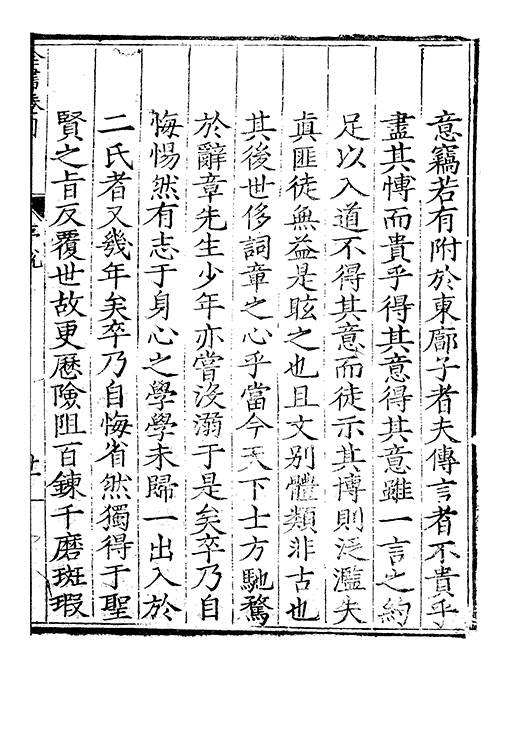 意竊若有附於東廓子者夫傳言者不貴乎
盡其愽而貴乎得其意得其意雖一言之約
足以入道不得其意而徒示其博則泛濫失
真匪徒無益是眩之也且文别體類非古也
其後世侈詞章之心乎當今天下士方馳騖
於辭章先生少年亦嘗没溺于是矣卒乃自
悔惕然有志于身心之學學未歸一出入於
二氏者又幾年矣卒乃自悔省然獨得于聖
賢之旨反覆世故更歷險阻百鍊千磨斑瑕
序說